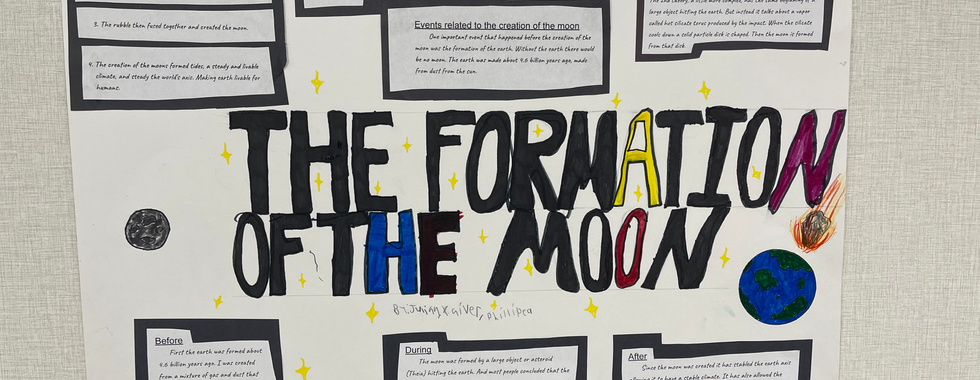 3. The rubble then fused together and created the moon.
4. The creation of the moons formed tides, a steady and livable
climate, and steady the world's axis. Making earth livable for
humans.
Events related to the creation of the moon
One important event that happened before the creation of the
moon was the formation of the earth. Without the earth there would
be no moon. The earth was made about 4.6 billion years ago, made
from dust from the sun.
large object hitting the earth. But instead it talks about a vapor
called hot silicate torus produced by the impact. When the silicate
cools down a cold particle disk is shaped. Then the moon is formed
from that disk.
THE FORMATION
OF THE MOON
Before
First the earth was formed about
4.6 billion years ago. It was created
from a mixture of gas and dust that
During
The moon was formed by a large object or asteroid
(Theia) hitting the earth. And most people concluded that the
After
Since the moon was created it has stabled the earth axis
allowing it to have a stable climate. It has also allowed the